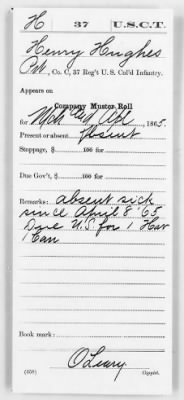 H | 37 | U.S.C.T.
Henry Hughes
Pvt, Co. C, 37 Reg't U.S. Col'd Infantry.
Appears on
Company Muster Roll
for Mch and Apl, 1865.
Present or absent Absent
Stoppage, $ 100 for
Due Gov't, $ 100 for
Remarks: absent sick
since April 8 '65
Due U.S. for 1 Hav
1 Can
Book mark:
O'Leary
(358) Copyist.